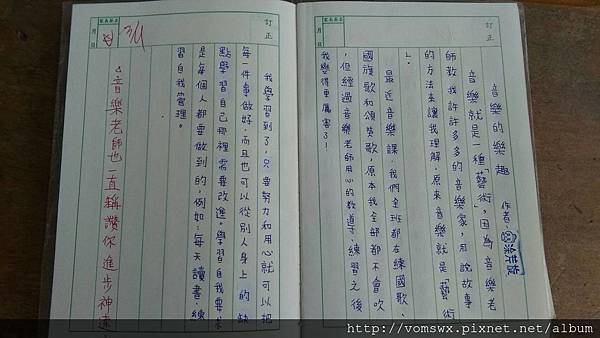 音樂的樂趣
作者:
音樂就是一種「藝術」,因為音樂老
師教我許許多多的音樂家,用說故事
的方法來讓我理解,原來音樂就是藝術
。
最近音樂課,我們全班都在練國歌、
國旗歌和頌榮歌,原本我全部都不會吹
,但經過音樂老師用心的教導下,練習之後
,我變得更厲害了!
我學習到了,只要努力和用心就可以把
每一件事做好,而且也可以從別人身上的缺
點學習自己哪裡需要改進。學習自我要求
是每個人都要做到的,例如:每天讀書、練
習自我管理。
音樂老師也一直稱讚你進步神速
訂正
月
日
訂正
月
日
http://vomswx.pixnet.net/album